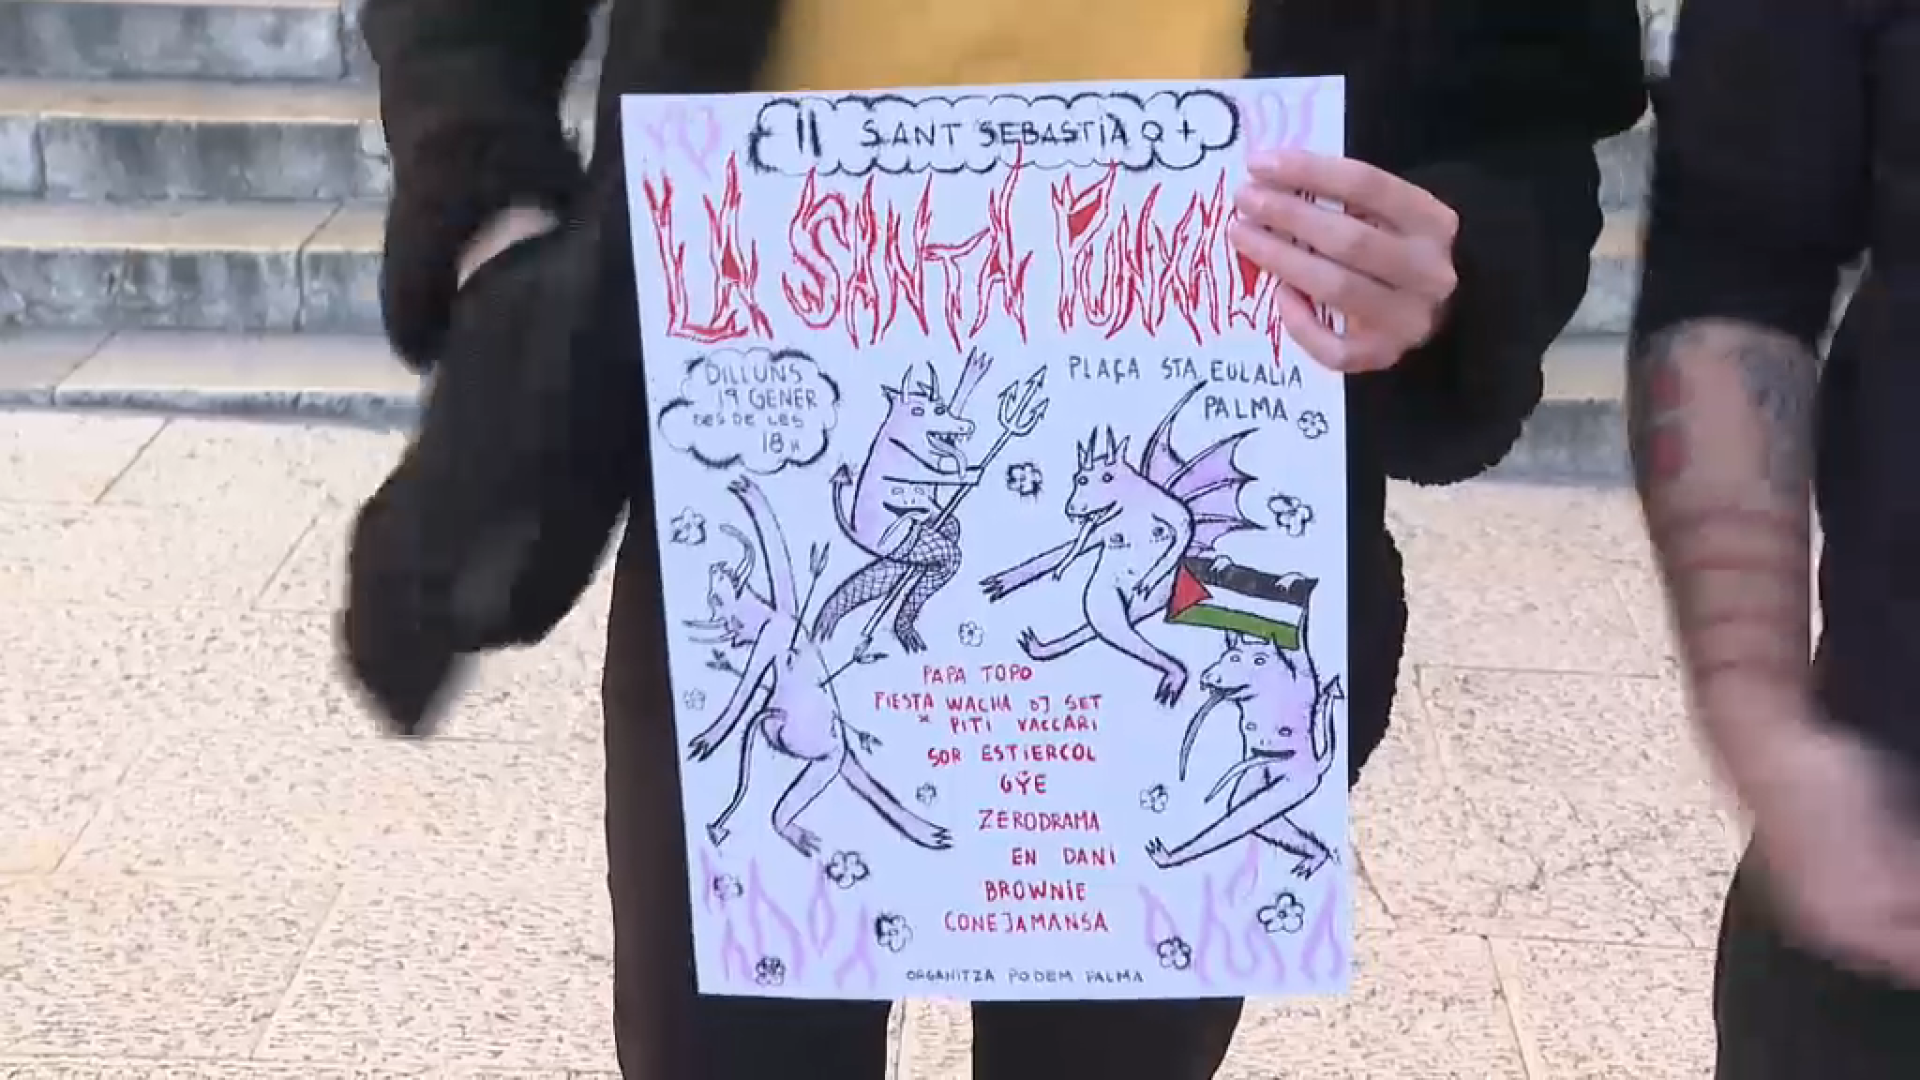 II SANT SEBASTIÀ Q+
LA SANTA
DILLUNS
19 GENER
DES DE LES
18H
PLAÇA STA EULALIA
PALMA
PAPA TOPO
FIESTA WACHA DJ SET
× PITI VACCARI
SOR ESTIERCOL
GŸE
ZERODRAMA
EN DANI
BROWNIE
CONEJAMANSA
ORGANITZA PODEM PALMA